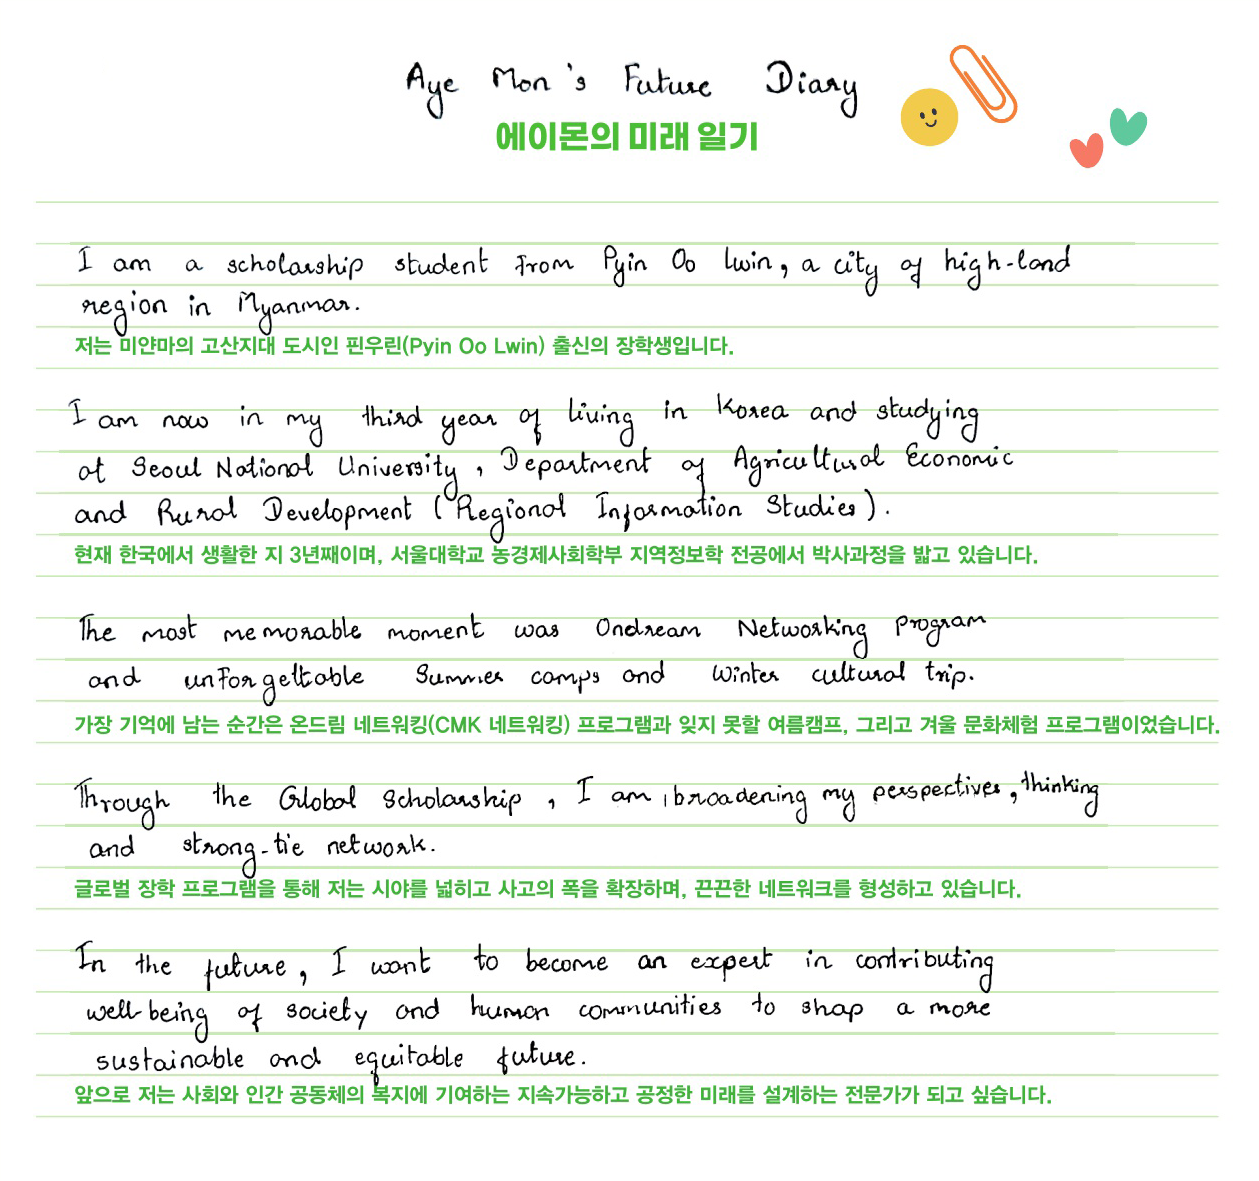 Aye Mon's Future Diary
에이몬의 미래 일기
I am a scholarship student from Pyin Oo Lwin, a city of high-land
region in Myanmar.
저는 미얀마의 고산지대 도시인 핀우린(Pyin Oo Lwin) 출신의 장학생입니다.
I am now in my third year of living in Korea and studying
at Seoul National University, Department of Agricultural Economic
and Rural Development (Regional Information Studies).
현재 한국에서 생활한 지 3년째이며, 서울대학교 농경제사회학부 지역정보학 전공에서 박사과정을 밟고 있습니다.
The most memorable moment was Ondream Networking Program
and unforgettable Summer camps and Winter cultural trip.
가장 기억에 남는 순간은 온드림 네트워킹(CMK 네트워킹) 프로그램과 잊지 못할 여름캠프, 그리고 겨울 문화체험 프로그램이었습니다.
Through the Global Scholarship, I am broadening my perspectives, thinking
and strong-tie network.
글로벌 장학 프로그램을 통해 저는 시야를 넓히고 사고의 폭을 확장하며, 끈끈한 네트워크를 형성하고 있습니다.
In the future, I want to become an expert in contributing
well-being of society and human communities to shap a more
sustainable and equitable future.
앞으로 저는 사회와 인간 공동체의 복지에 기여하는 지속가능하고 공정한 미래를 설계하는 전문가가 되고 싶습니다.